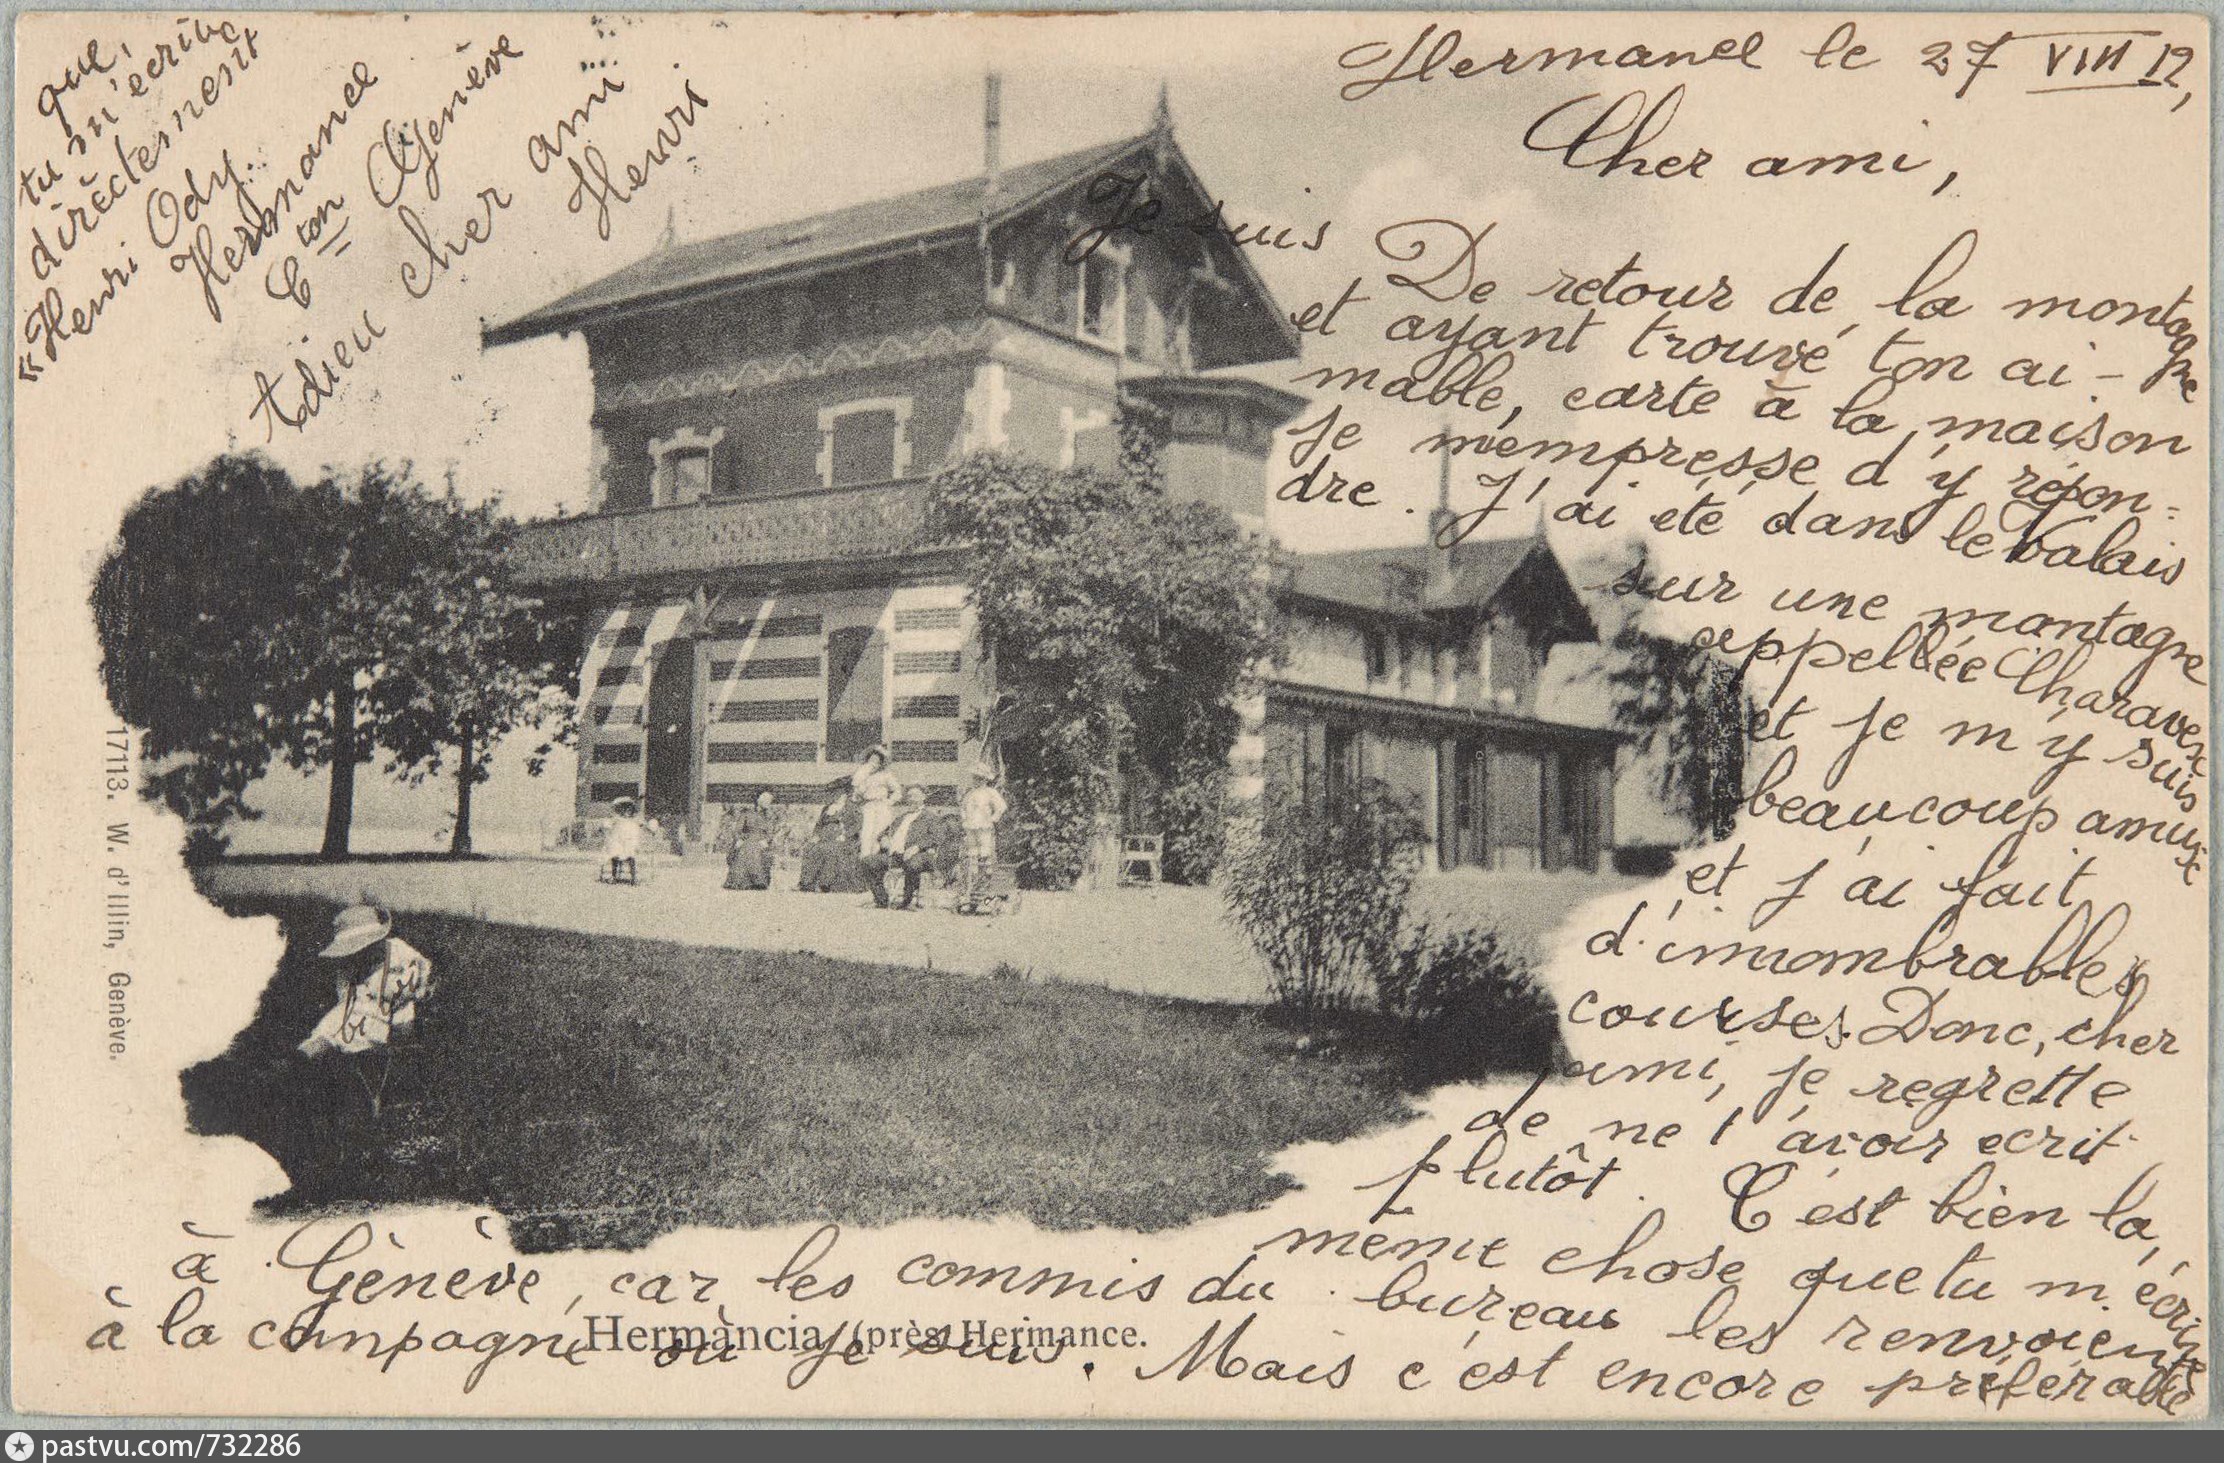 Hermance le 27 VIII 12,
Cher ami,
Je suis
De retour de la montagne
et ayant trouvé ton ai-
mable, carte à la maison
je m'empresse d'y répon=
dre. J'ai été dans le Valais
sur une montagne
appellée Charavex
et je m'y suis
beaucoup amusé
et j'ai fait
d'innombrables
courses. Donc, cher
ami, je regrette
de ne t'avoir ecrit
plutôt. C'est bien la,
même chose que tu m'écrive
à Génève, car les commis du bureau les renvoient
à la campagne où je suis. Mais c'est encore préférable
que,
tu m'ecrive
directement
"Henri Ody.
Hermance
Cton Genève
Adieu cher ami
Henri
bibi
17113. W. d'Illin, Genève.
Hermancia (près Hermance.
pastvu.com/732286